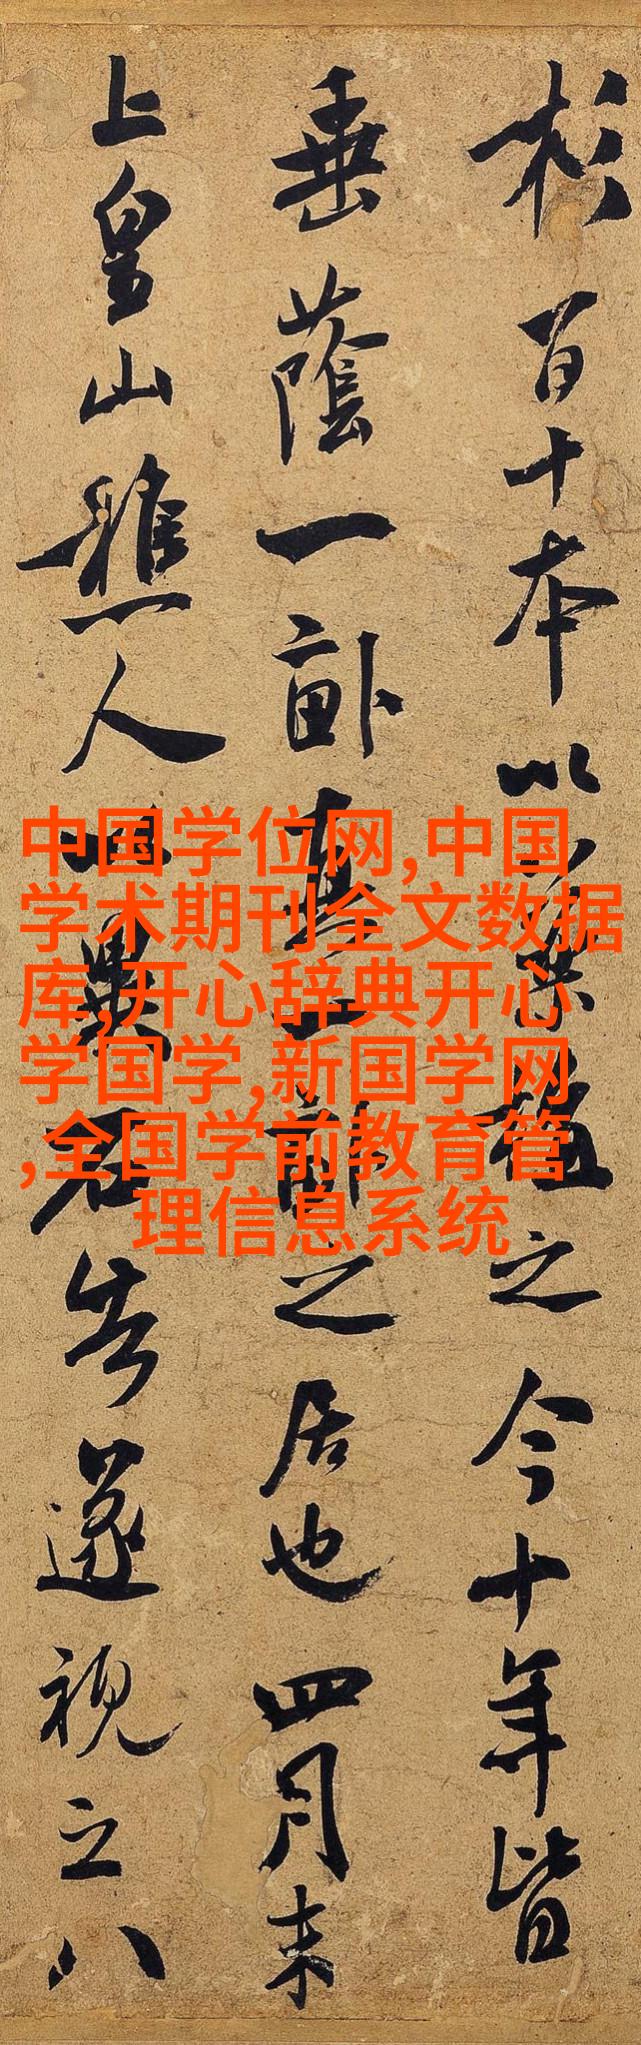 杉百十本以植之今十年皆
垂蔭一畝真之居也四月末
上皇山樵人以異石告遂視之八
中国学位网,中国
学术期刊全文数据
库,开心辞典开心
学国学,新国学网
,全国学前教育管
理信息系统